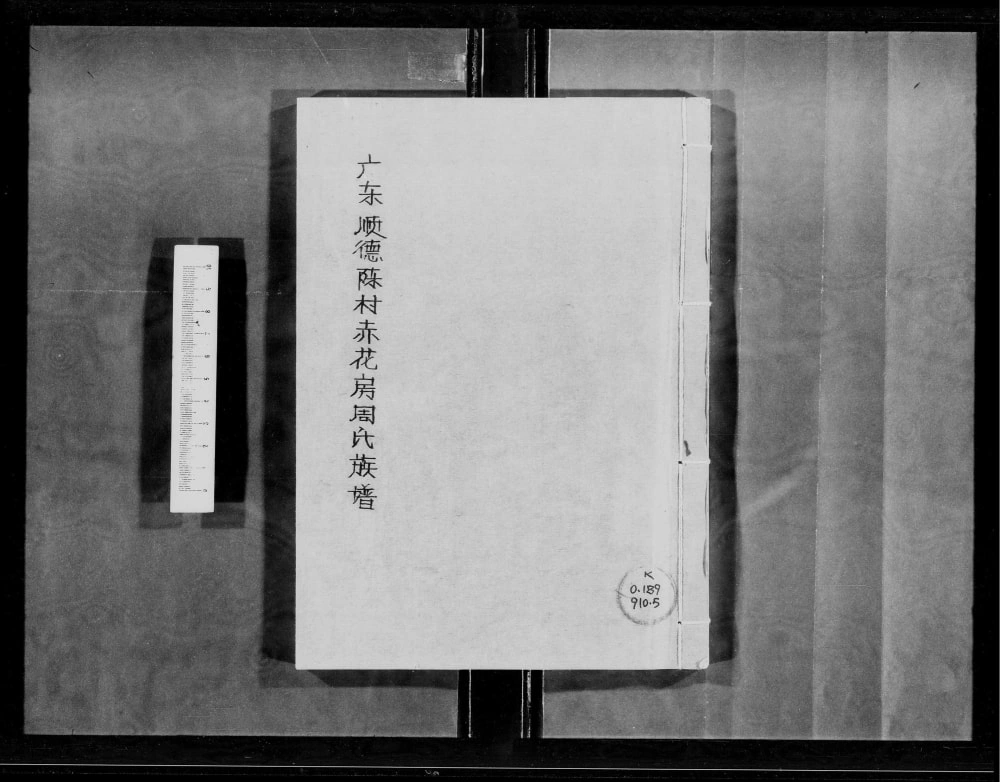 广东顺德陈村赤花房周氏族谱
K
0.189
910.5